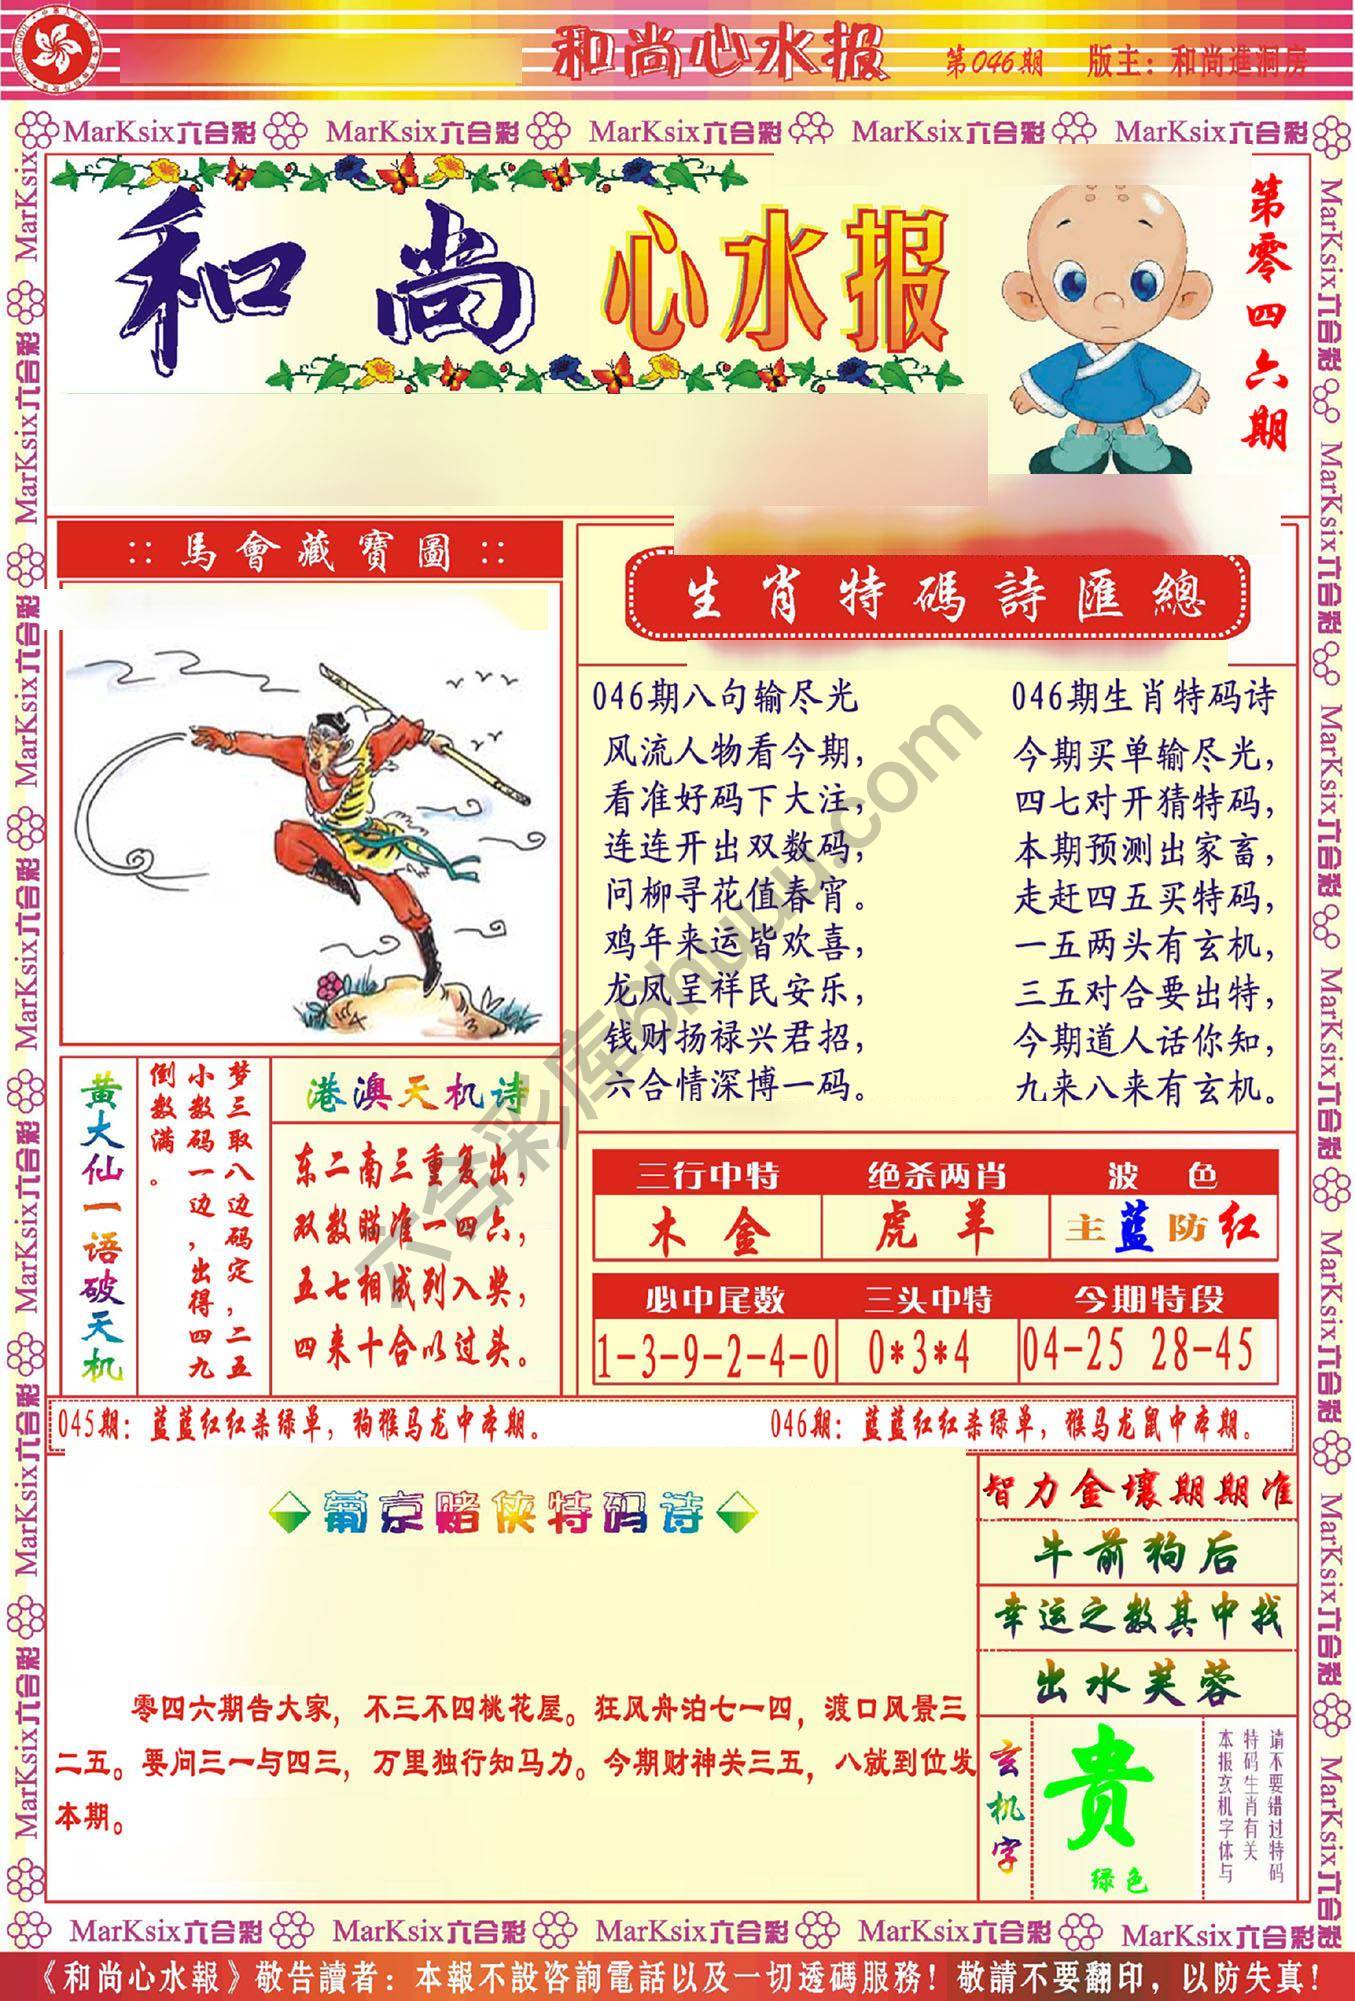 和尚心水报 第046期 版主：和尚進洞房
MarKsix六合彩 MarKsix六合彩 MarKsix六合彩 MarKsix六合彩 MarKsix六合彩
和尚心水报
第零四六期
::馬會藏寶圖::
生肖特碼詩匯總
046期八句输尽光
风流人物看今期，
看准好码下大注，
连连开出双数码，
问柳寻花值春宵。
鸡年来运皆欢喜，
龙凤呈祥民安乐，
钱财扬禄兴君招，
六合情深博一码。
046期生肖特码诗
今期买单输尽光，
四七对开猜特码，
本期预测出家畜，
走赶四五买特码，
一五两头有玄机，
三五对合要出特，
今期道人话你知，
九来八来有玄机。
六合彩库6huuu.com
黄大仙一语破天机
梦三取八边码定，二五
小数码一边，出得四九
倒数满。
港澳天机诗
东二南三重复出，
双数瞄准一四六，
五七相成列入奖，
四来十合以过头。
三行中特 绝杀两肖 波色
木金 虎羊 主蓝防红
必中尾数 三头中特 今期特段
1-3-9-2-4-0 0*3*4 04-25 28-45
045期：蓝蓝红红杀绿单，狗猴马龙中本期。 046期：蓝蓝红红杀绿单，猴马龙鼠中本期。
葡京赌侠特码诗
零四六期告大家，不三不四桃花屋。狂风舟泊七一四，渡口风景三
二五。要问三一与四三，万里独行知马力。今期财神关三五，八就到位发
本期。
智力金壤期期准
牛前狗后
幸运之数其中找
出水芙蓉
玄机字
贵
绿色
请不要错过特码
特码生肖有关
本报玄机字体与
MarKsix六合彩 MarKsix六合彩 MarKsix六合彩 MarKsix六合彩 MarKsix六合彩
《和尚心水報》敬告讀者：本報不設咨詢電話以及一切透碼服務！敬請不要翻印，以防失真！